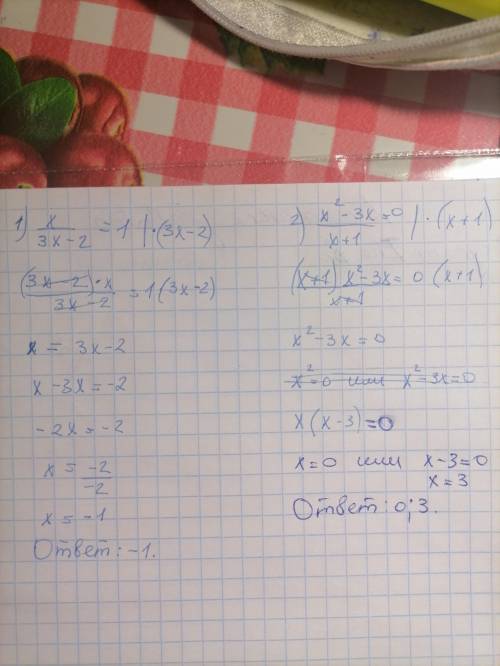 1) x/(3x-2) = 1 | ·(3x-2)
(3x-2)·x/(3x-2) = 1(3x-2)
x = 3x-2
x-3x=-2
-2x=-2
x = -2/-2
x = -1
Ответ: -1.
2) (x²-3x)/(x+1) = 0 | ·(x+1)
(x+1) x²-3x/(x+1) = 0 (x+1)
x²-3x=0
x²=0 или x²-3x=0
x(x-3)=0
x=0 или x-3=0
x=3
Ответ: 0; 3.